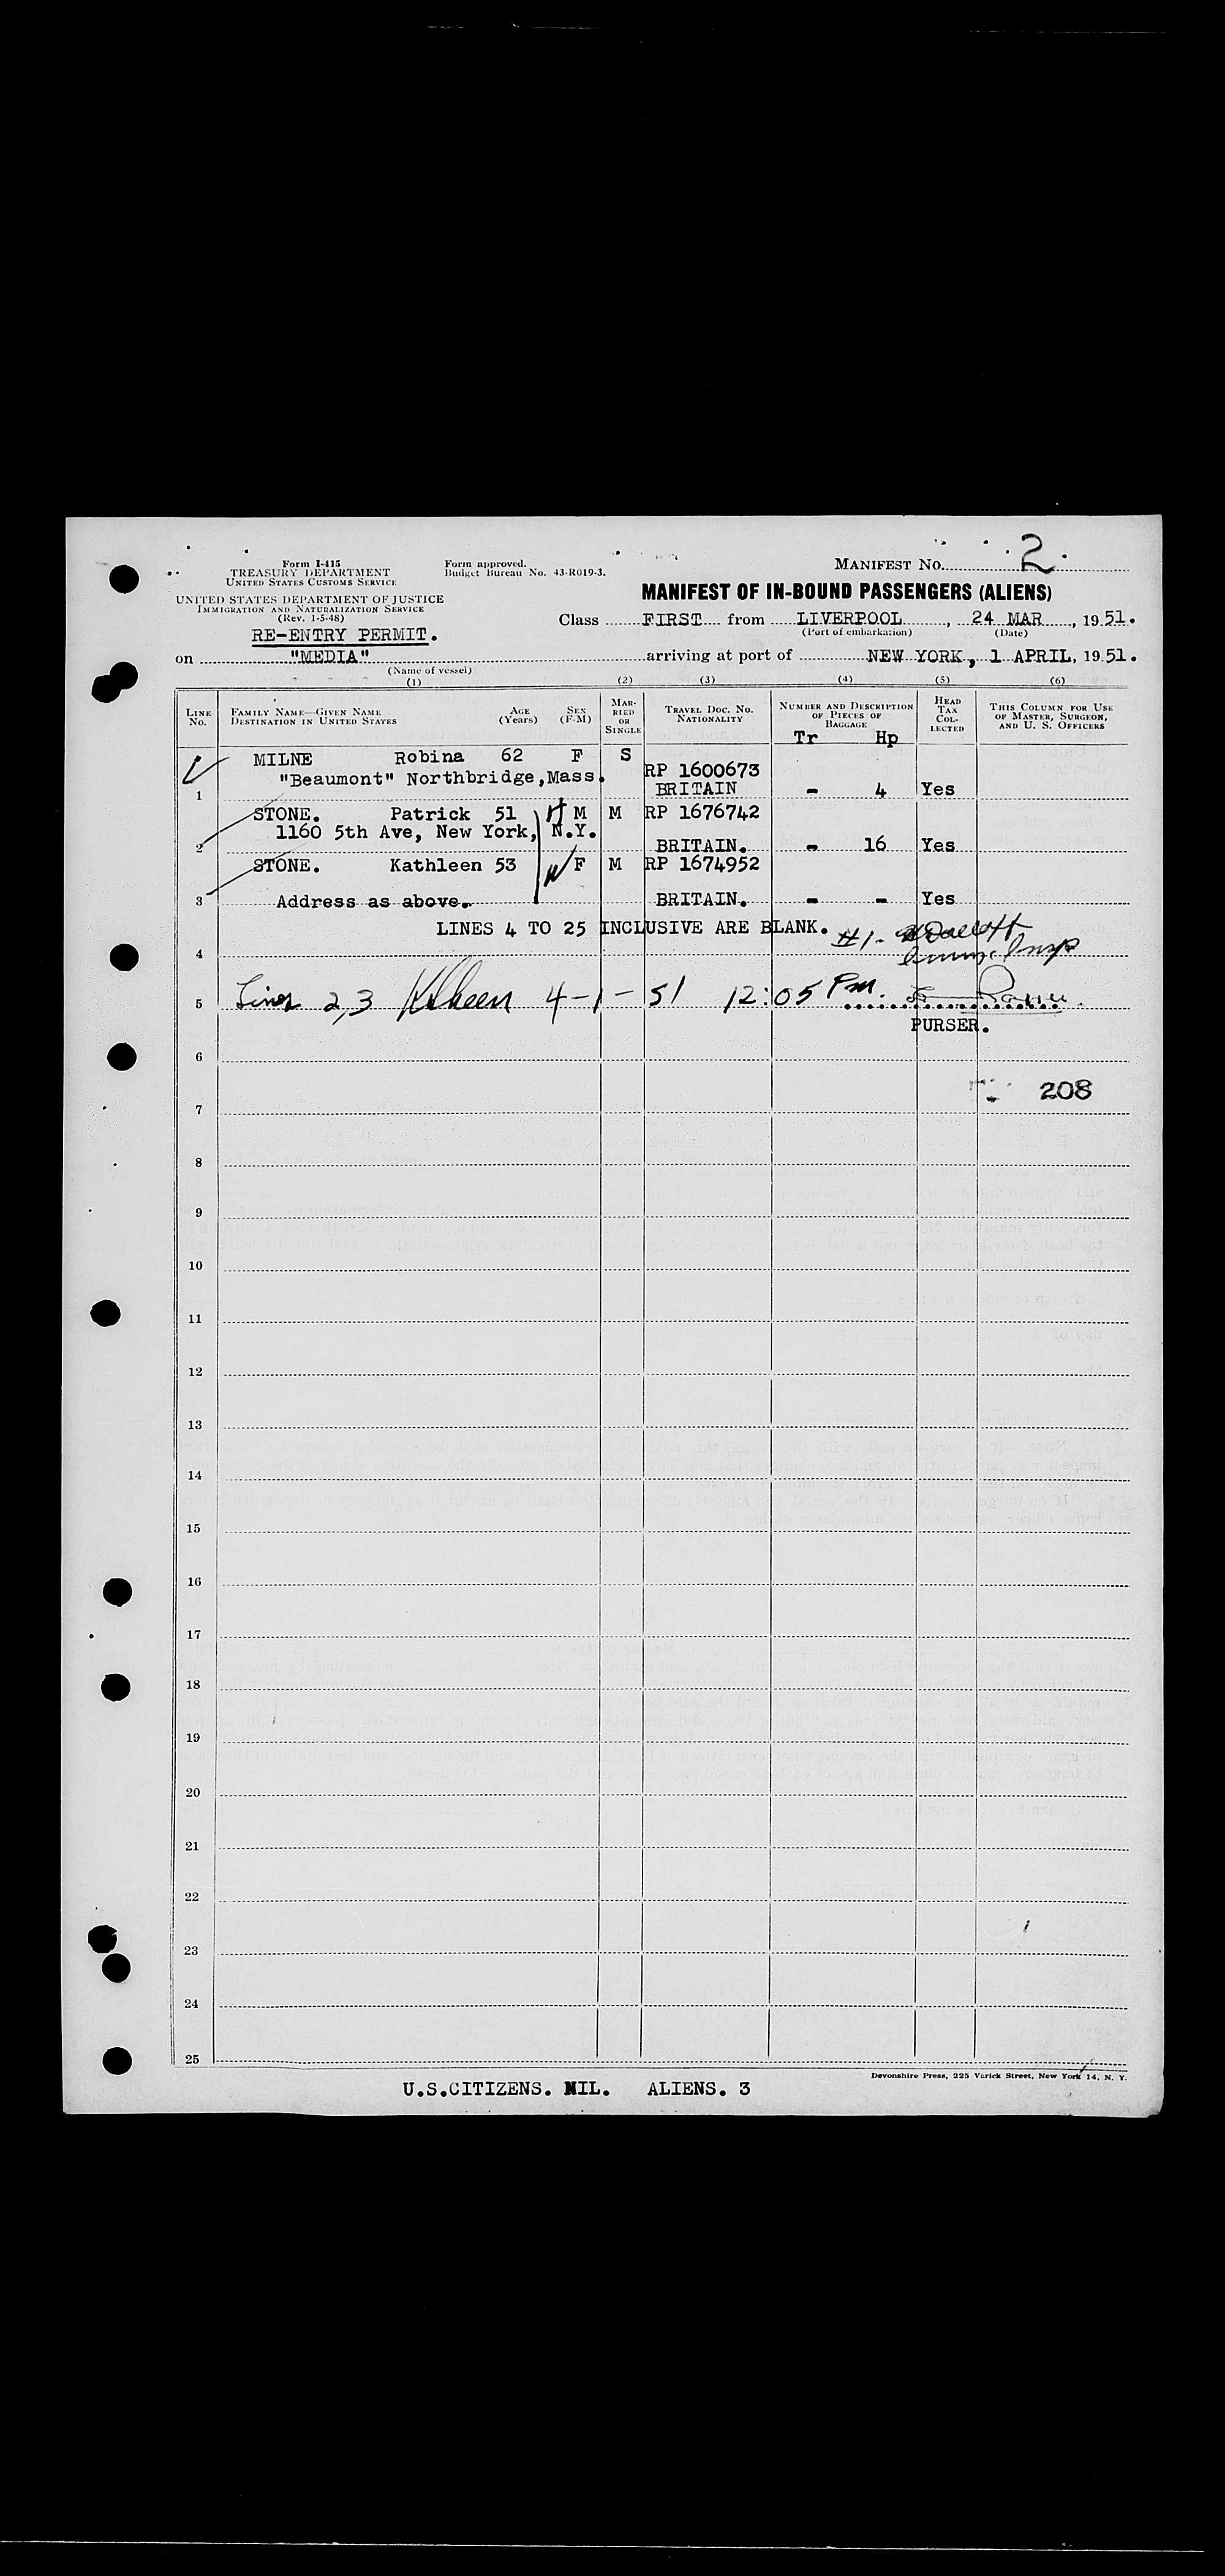 Form I-415
TREASURY DEPARTMENT
UNITED STATES CUSTOMS SERVICE
UNITED STATES DEPARTMENT OF JUSTICE
IMMIGRATION AND NATURALIZATION SERVICE
(Rev. 1-5-48)
RE-ENTRY PERMIT.
Form approved.
Budget Bureau No. 43-R019-3.
MANIFEST NO. 2
MANIFEST OF IN-BOUND PASSENGERS (ALIENS)
Class FIRST from LIVERPOOL, 24 MAR, 1951.
(Port of embarkation) (Date)
on "MEDIA" arriving at port of NEW YORK, 1 APRIL, 1951.
(Name of vessel)
(1) (2) (3) (4) (5) (6)
LINE NO. FAMILY NAME—GIVEN NAME DESTINATION IN UNITED STATES AGE (Years) SEX (F-M) MARRIED OR SINGLE TRAVEL DOC. NO. NATIONALITY NUMBER AND DESCRIPTION OF PIECES OF BAGGAGE HEAD TAX COLLECTED THIS COLUMN FOR USE OF MASTER, SURGEON, AND U. S. OFFICERS
Tr Hp
MILNE Robina 62 F S RP 1600673
"Beaumont" Northbridge, Mass.
1 BRITAIN - 4 Yes
STONE. Patrick 51 H M M RP 1676742
1160 5th Ave, New York, N.Y.
2 BRITAIN. - 16 Yes
STONE. Kathleen 53 W F M RP 1674952
3 Address as above. BRITAIN. - - Yes
LINES 4 TO 25 INCLUSIVE ARE BLANK. #1-
4 Insp
5 Lines 2,3 4-1-51 12:05 PM.
PURSER.
6
208
7
8
9
10
11
12
13
14
15
16
17
18
19
20
21
22
23
24
25
Devonshire Press, 225 Varick Street, New York 14, N. Y.
U.S.CITIZENS. NIL. ALIENS. 3